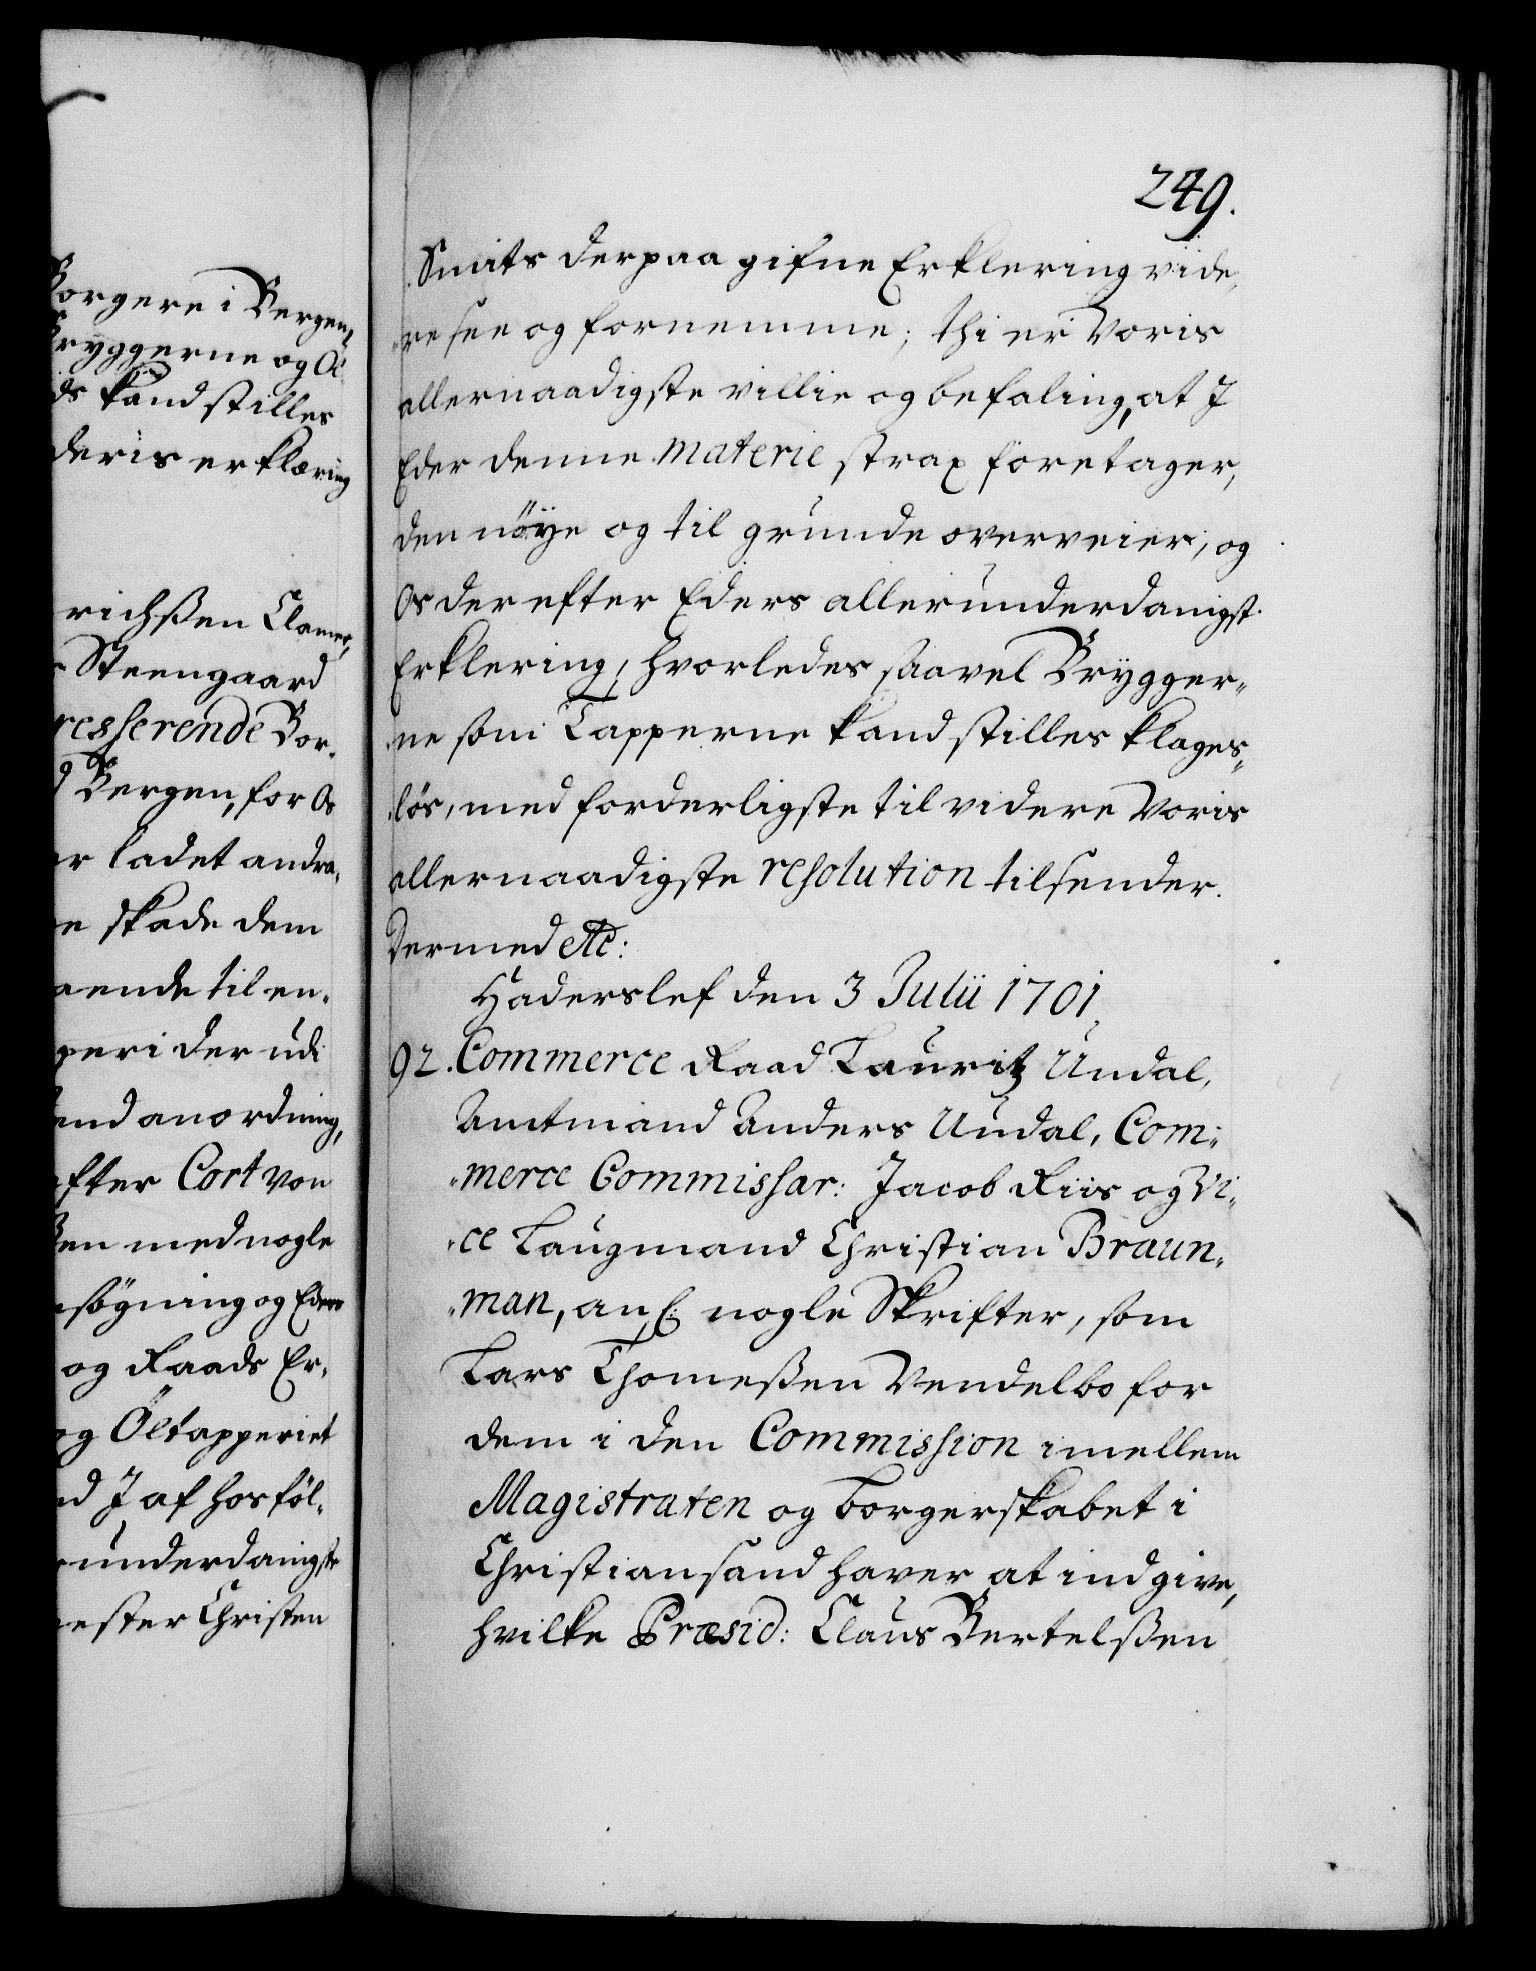 Borgere i Bergen,
Bryggerne og Öl
ds kand stilles
deris erklæring
richßen Clamer,
Steengaard
resserende Bor-
d Bergen, for Os
er ladet andra-
e skade dem
aende til en-
peri der udi
end anordning,
efter Cort von
ßen med nogle
nsøgning og Eders
og Raads Er-
og Öltapperiet
ed J af hosföl-
underdanigste
mester Christen
249.
Smits derpaa gifne Erklering vide-
re see og fornemme; thi er Voris
allernaadigste villie og befaling, at J
Eder denne materie strax foretager,
den nöye og til grunde overveier, og
Os der efter Eders allerunderdanigst.
Erklering, hvorledes saavel Brygger-
ne som Tapperne kand stilles klages-
lös, med forderligste til videre Voris
allernaadigste resolution tilsender.
Dermed etc:
Haderslef den 3 Julii 1701.
92. Commerce Raad Lauritz Undal,
Amtmand Anders Undal, Com-
merce Commissar: Jacob Riis og Vi-
ce Laugmand Christian Braun-
man, anl: nogle Skrifter, som
Lars Thomeßen Vendelbo for
dem i den Commission imellem
Magistraten og borgerskabet i
Christiansand haver at indgive,
hvilke Præsid: Claus Bertelßen